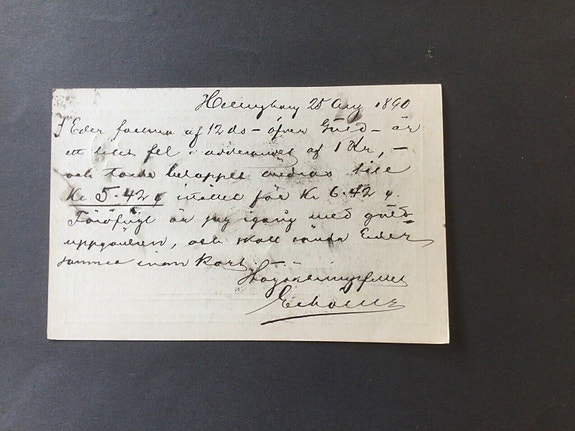 Helsingborg 25 Aug 1890
I Eder faktura af 12 ds – öfver Gued – är
ett litet fel i adderingen af 1 Kr, –
och torde beloppet ändras till
Kr 5.42 istället för Kr 6.42
är jag igång med
uppgörelsen, och skall sända Eder
samma inom kort. –
Högaktningsfullt